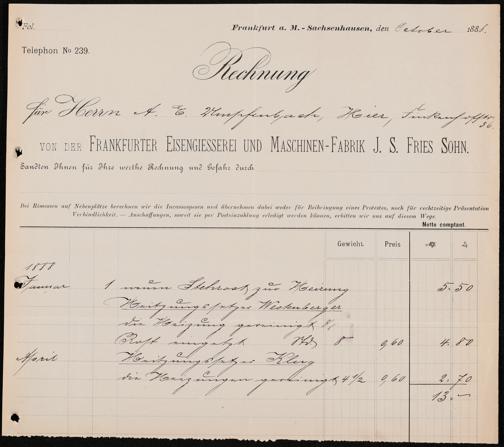 Fol.
Frankfurt a. M. - Sachsenhausen, den October 188
Telephon No 239.
Rechnung
für Herrn A. E. Umpfenbach, Hier,
VON DER FRANKFURTER EISENGIESSEREI UND MASCHINEN-FABRIK J. S. FRIES SOHN.
Sandten Ihnen für Ihre werthe Rechnung und Gefahr durch
Bei Rimessen auf Nebenplätze berechnen wir die Incassospesen und übernehmen dabei weder für Beibringung eines Protestes, noch für rechtzeitige Präsentation
Verbindlichkeit. — Anschaffungen, soweit sie per Posteinzahlung erledigt werden können, erbitten wir uns auf diesem Wege.
Netto comptant.
Gewicht. Preis
Januar 1 neuen zur Heizung 5. 50
Heitzungssetzer Weckenberger
die Heizung gereinigt
Rost eingesetzt 8 0,60 4. 80
April Heitzungssetzer Klug
die Heizungen gereinigt 4 1/2 0,60 2. 70
13. —